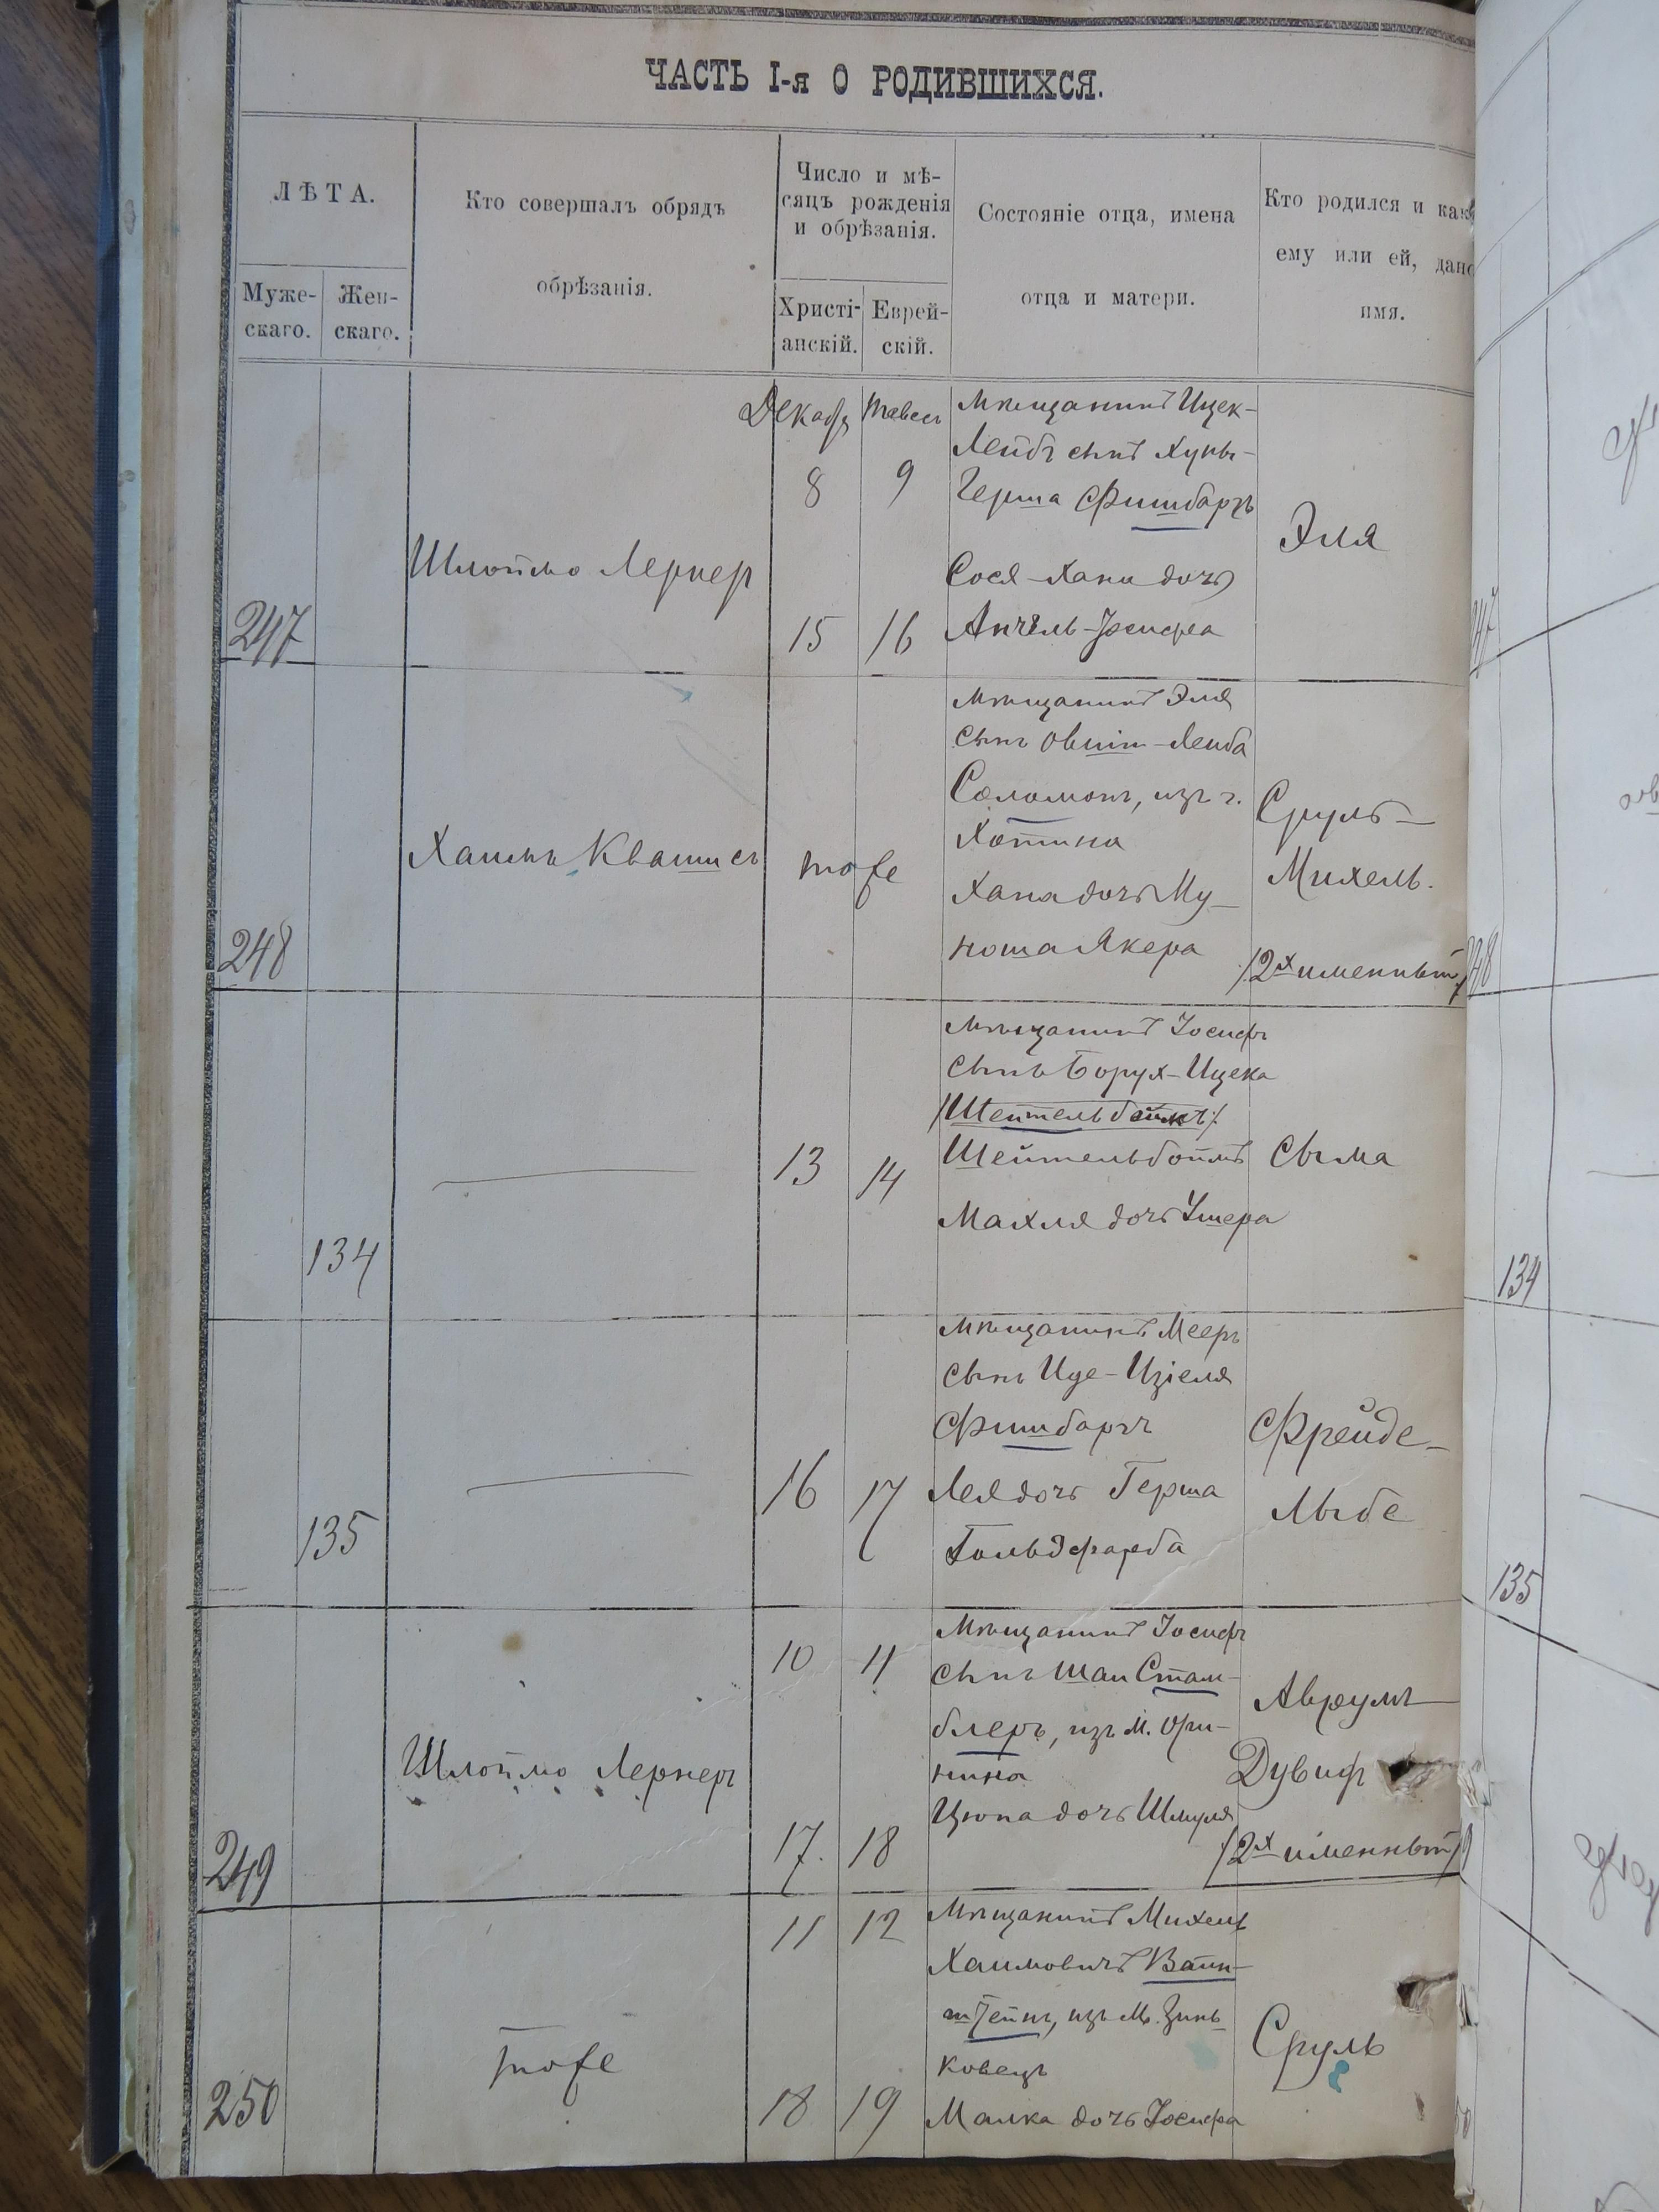 ЧАСТЬ I-я О РОДИВШИХСЯ.
ЛѢТА.
Муже-
скаго.
Жен-
скаго.
Кто совершалъ обрядъ
обрѣзанія.
Число и мѣ-
сяцъ рожденія
и обрѣзанія.
Христі-
анскій.
Еврей-
скій.
Состояніе отца, имена
отца и матери.
Кто родился и како
ему или ей, дано
имя.
247
Шлоймо Лернеръ
Декабр
Тавесъ
8 9
15 16
Мѣщанинъ Ицек-
Лейбъ сынъ Хуны-
Герша Фишбаргъ
Сося-Хани дочь
Анчель-Іосифа
Эля
247
248
Хаимъ Квашисъ
тоже
Мѣщанинъ Эля
сынъ Овшія-Лейба
Соломонъ, изъ г.
Хотина
Хана дочь Му-
ноша Якера
Сруль-
Михель.
/2х именный/
248
134
13 14
Мѣщанинъ Іосифъ
сынъ Борух-Ицека
/Шейтельбейкъ/
Шейтельбоймъ
Махля дочь Ушера
Сыма
134
135
16 17
Мѣщанинъ Мееръ
сынъ Иде-Изіеля
Фишбаргъ
Лея дочь Герша
Гольдфарба
Фрейде-
Лыбе
135
249
Шлоймо Лернеръ
10 11
17. 18
Мѣщанинъ Іосифъ
сынъ Шаи Стам-
блеръ, изъ м. Ори-
нина
Цюпа дочь Шмуля
Аврумъ
Дувидъ
/2х именный/
250
тоже
11 12
18 19
Мѣщанинъ Михель
Хаимовичъ Вайн-
штейнъ, изъ м. Зинь-
ковецъ
Малка дочь Іосифа
Сруль